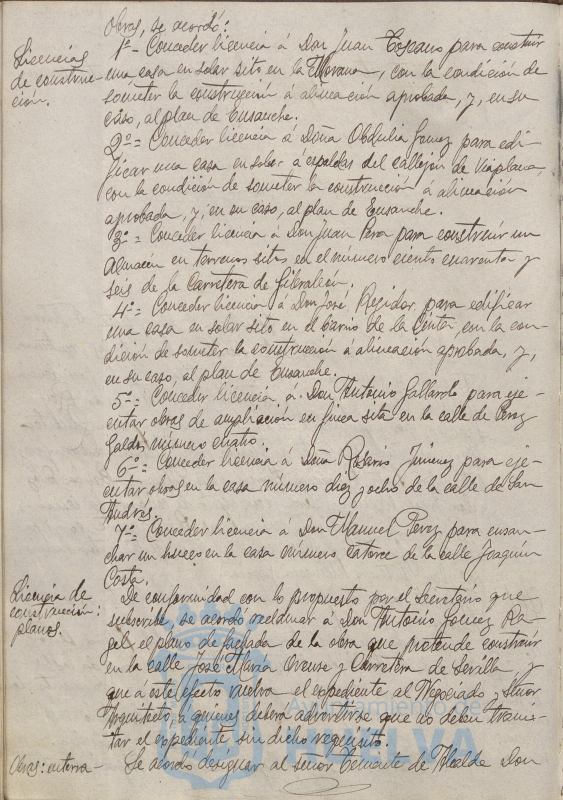 Obras, se acordó:
Licencias
de construc-
ción.
1º= Conceder licencia á Don Juan Toscano para construir
una casa en solar sito en la Morana, con la condición de
someter la construcción á alineación aprobada, y, en su
caso, al plan de Ensanche.
2º= Conceder licencia á Doña Obdulia Gomez para edi-
ficar una casa en solar á espaldas del callejon de Viaplana,
con la condición de someter la construcción á alineación
aprobada, y, en su caso, al plan de Ensanche.
3º= Conceder licencia á Don Juan para construir un
Almacén en terrenos sitos en el número ciento cuarenta y
seis de la Carretera de Gibraleón.
4º= Conceder licencia á Don José Regidor para edificar
una casa en solar sito en el barrio de la Cinta, con la con-
dición de someter la construcción á alineación aprobada, y,
en su caso, al plan de Ensanche.
5º= Conceder licencia á Don Antonio Gallardo para eje-
cutar obras de ampliación en finca sita en la calle de Perez
Galdos, número cuatro.
6º= Conceder licencia á Doña Rosario Jimenez para eje-
cutar obras en la casa número diez y ocho de la calle de San
Andres.
7º= Conceder licencia á Don Manuel Perez para ensan-
char un hueco en la casa número catorce de la calle Joaquin
Costa.
Licencia de
construcción:
planos.
De conformidad con lo propuesto por el Secretario que
subscribe, se acordó reclamar á Don Antonio Gomez Ra-
gel el plano de fachada de la obra que pretende construir
en la calle José María Orense y Carretera de Sevilla, y
que á este efecto vuelva el expediente al Negociado y Señor
Arquitecto, á quienes deberá advertirse que no deben trami-
tar el expediente sin dicho requisito.
Obras: interva-
Se acordó designar al señor Teniente de Alcalde Don
Ayuntamiento de
HUELVA